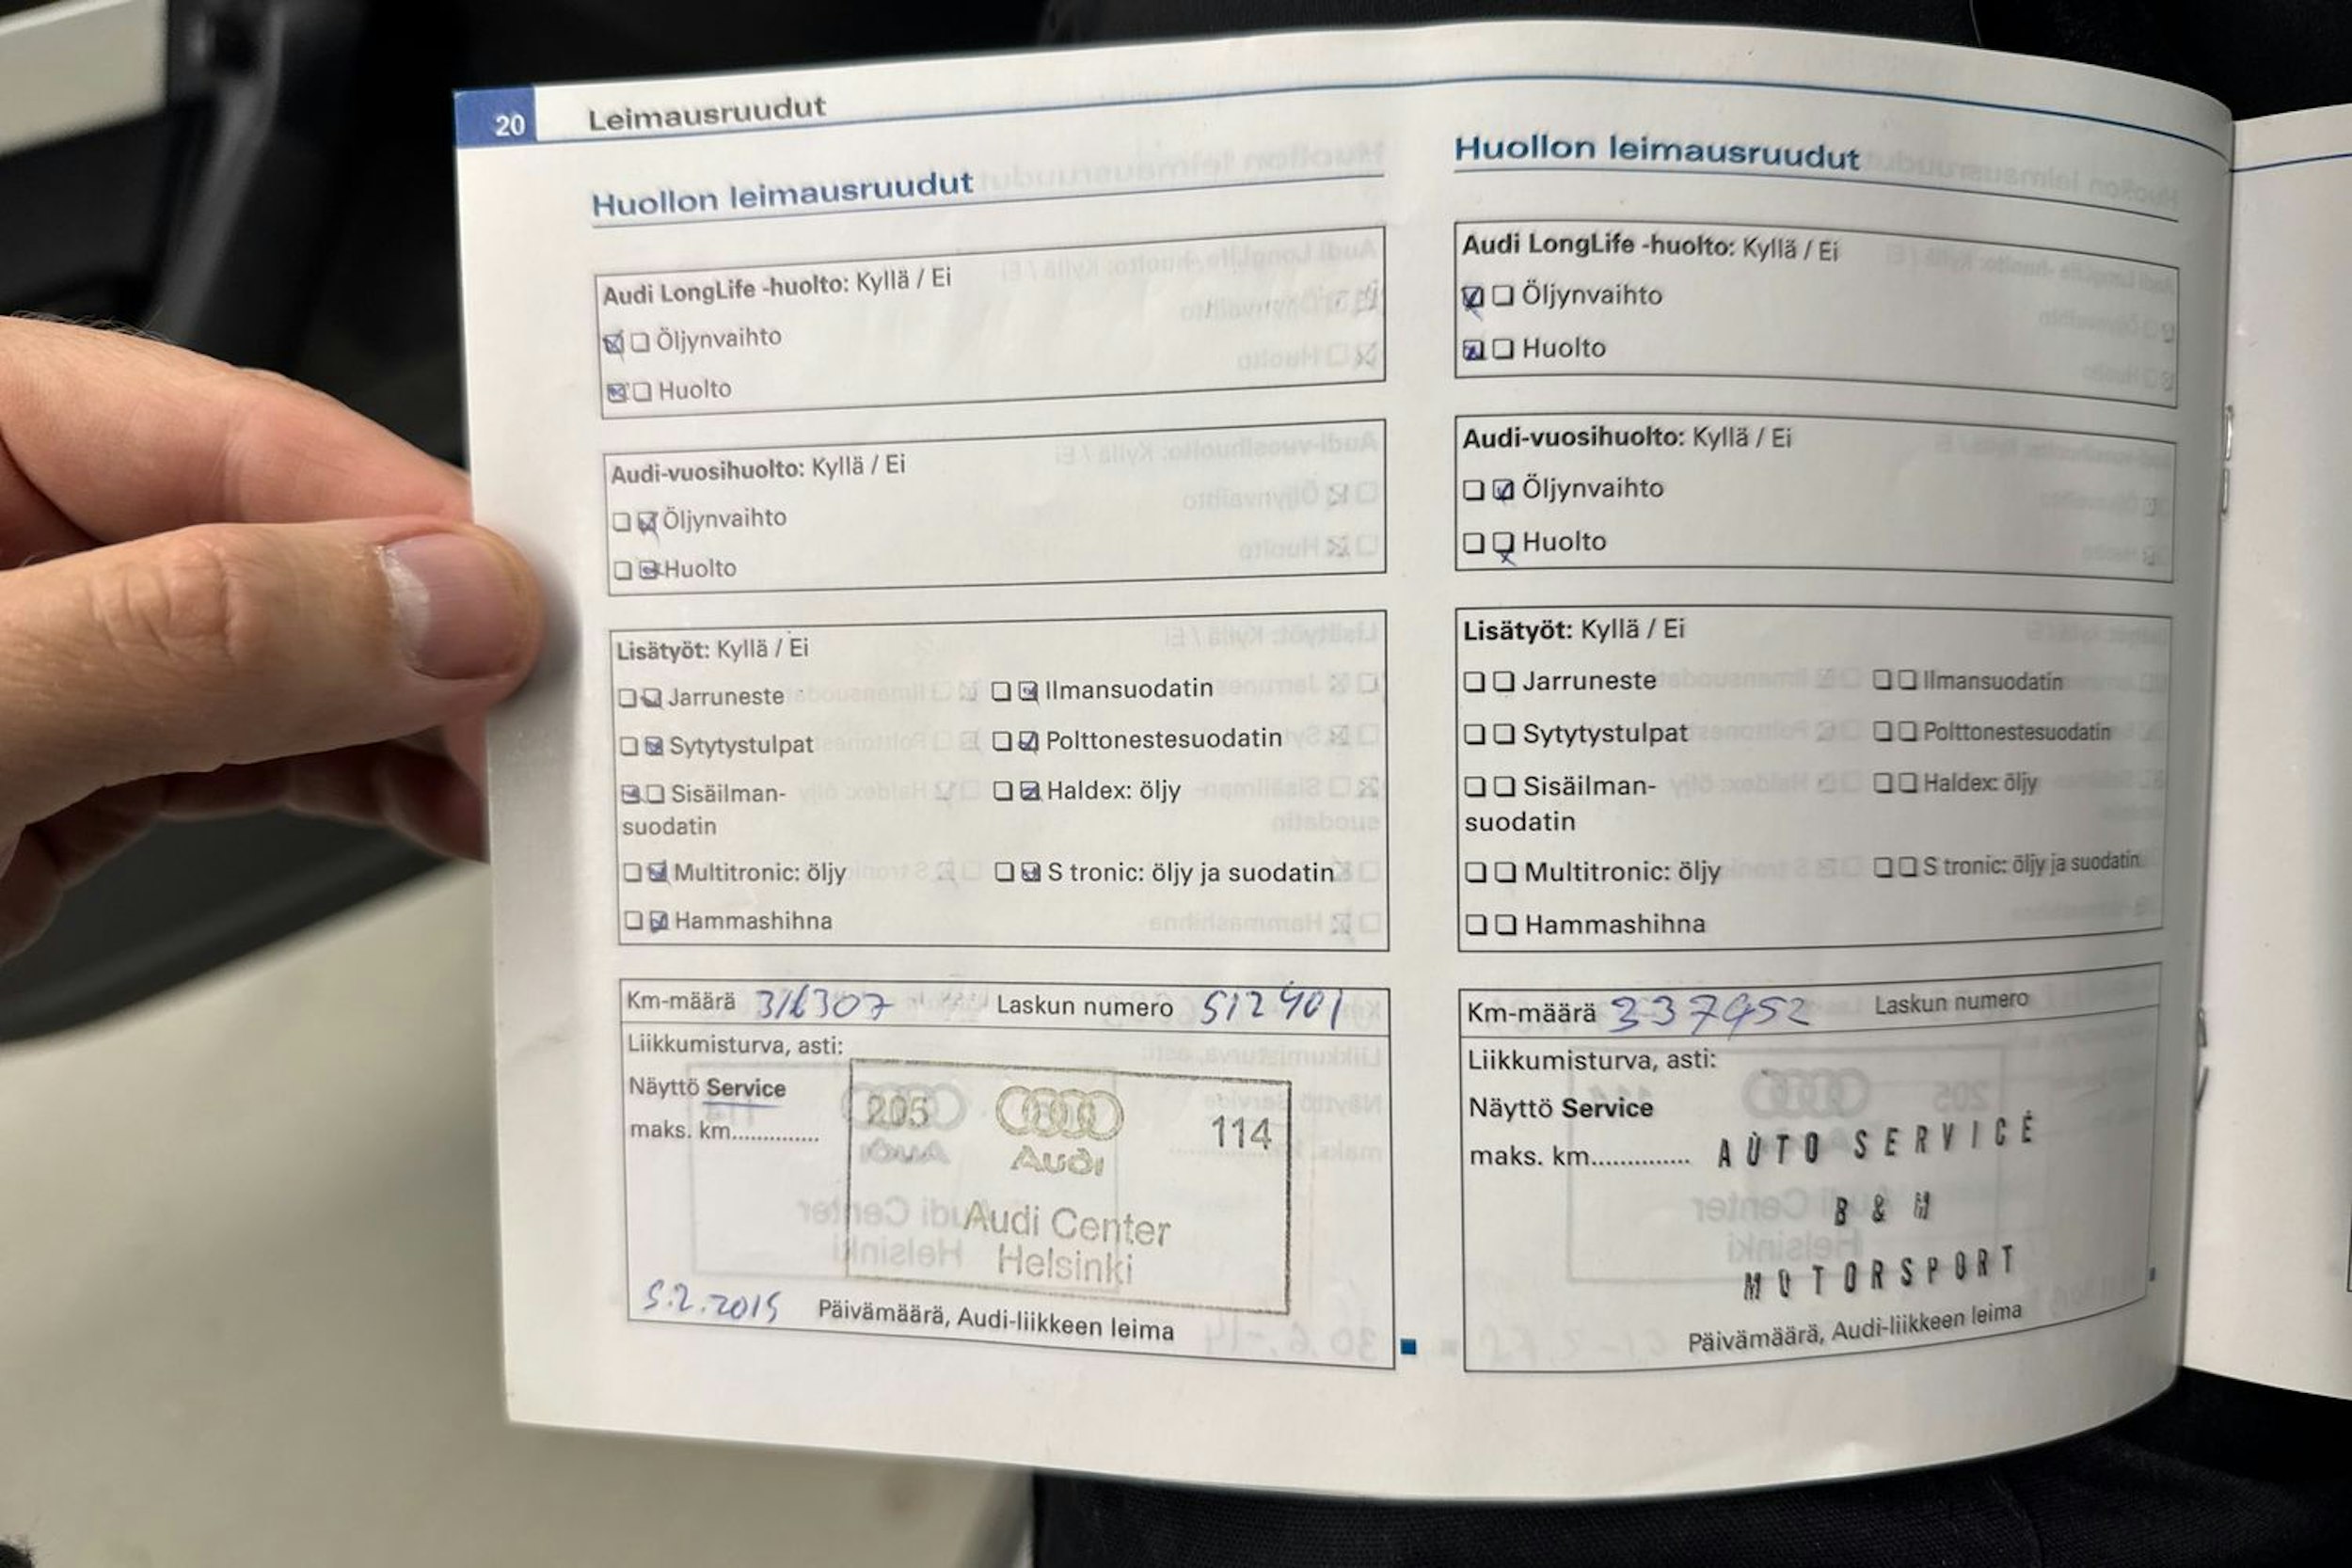 20 Leimausruudut
Huollon leimausruudut
Audi LongLife -huolto: Kyllä / Ei
Öljynvaihto
Huolto
Audi-vuosihuolto: Kyllä / Ei
Öljynvaihto
Huolto
Lisätyöt: Kyllä / Ei
Jarruneste Ilmansuodatin
Sytytystulpat Polttonestesuodatin
Sisäilman- Haldex: öljy
suodatin
Multitronic: öljy S tronic: öljy ja suodatin
Hammashihna
Km-määrä 316307 Laskun numero 512401
Liikkumisturva, asti:
Näyttö Service
maks. km..............
205 Audi 114
Audi Center
Helsinki
5.2.2015 Päivämäärä, Audi-liikkeen leima
Huollon leimausruudut
Audi LongLife -huolto: Kyllä / Ei
Öljynvaihto
Huolto
Audi-vuosihuolto: Kyllä / Ei
Öljynvaihto
Huolto
Lisätyöt: Kyllä / Ei
Jarruneste Ilmansuodatin
Sytytystulpat Polttonestesuodatin
Sisäilman- Haldex: öljy
suodatin
Multitronic: öljy S tronic: öljy ja suodatin
Hammashihna
Km-määrä 337952 Laskun numero
Liikkumisturva, asti:
Näyttö Service
maks. km..............
AUTO SERVICE
B & M
MOTORSPORT
Päivämäärä, Audi-liikkeen leima